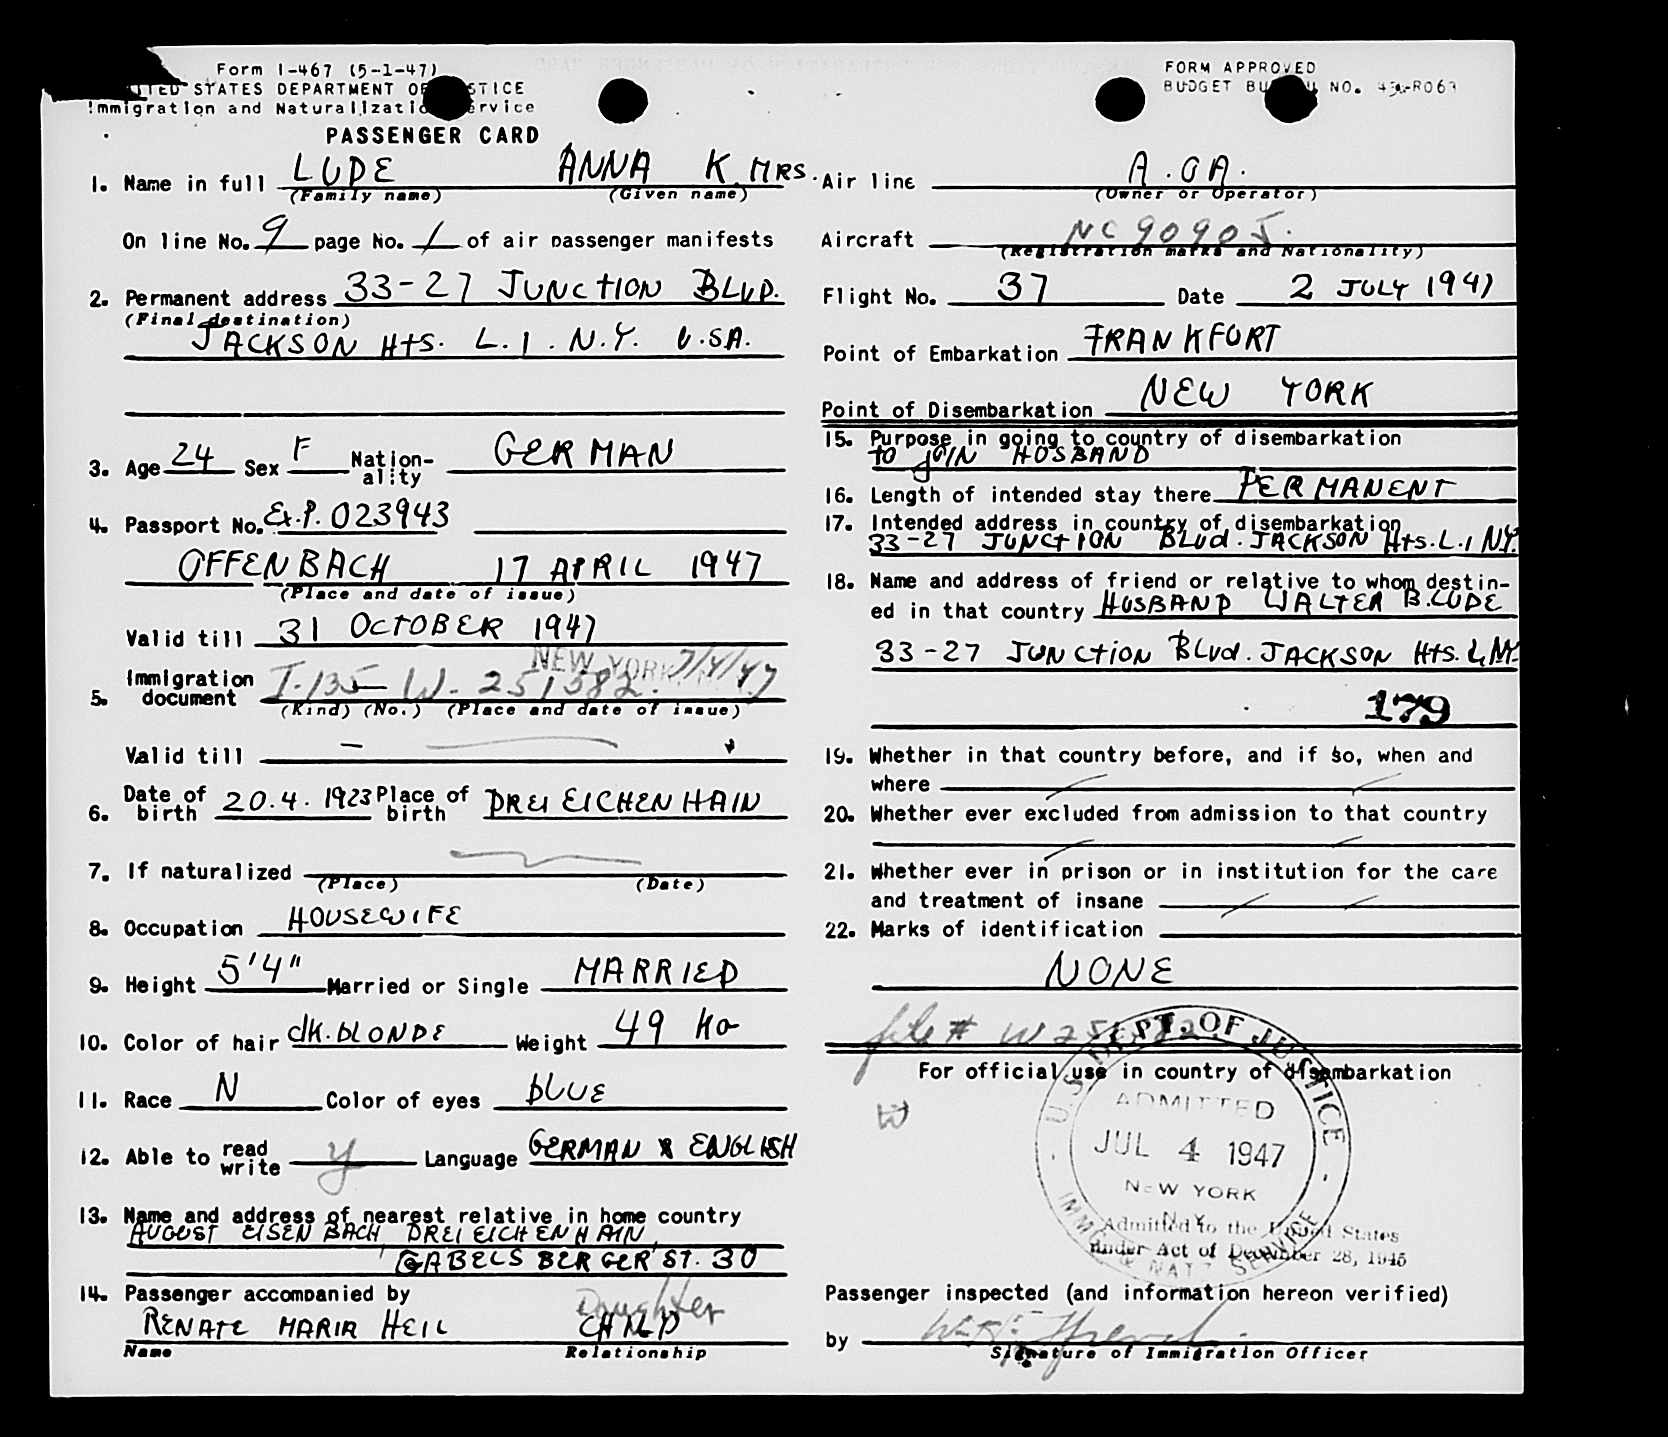 Form I-467 (5-1-47)
STATES DEPARTMENT OF JUSTICE
Immigration and Naturalization Service
PASSENGER CARD
1. Name in full LUDE ANNA K MRS.
(Family name) (Given name)
On line No. 9 page No. 1 of air passenger manifests
2. Permanent address 33-27 JUNCTION BLVD.
(Final destination)
JACKSON HTS. L.I. N.Y. U.SA.
3. Age 24 Sex F Nation-ality GERMAN
4. Passport No. Ex.P. 023943
OFFENBACH 17 APRIL 1947
(Place and date of issue)
Valid till 31 OCTOBER 1947
NEW YORK 7/4/47
5. Immigration document I-135 W-251582.
(Kind) (No.) (Place and date of issue)
Valid till —
6. Date of birth 20.4.1923 Place of birth DREIEICHENHAIN
7. If naturalized
(Place) (Date)
8. Occupation HOUSEWIFE
9. Height 5'4" Married or Single MARRIED
10. Color of hair dK.BLONDE Weight 49 Ko
11. Race N Color of eyes BLUE
12. Able to read write y Language GERMAN & ENGLISH
13. Name and address of nearest relative in home country
AUGUST EISENBACH, DREIEICHENHAIN,
GABELSBERGER ST. 30
14. Passenger accompanied by Daughter
RENATE MARIA HEIL CHILD
Name Relationship
FORM APPROVED
BUDGET BUREAU NO.
Air line A.OA.
(Owner or Operator)
Aircraft NC90905.
(Registration marks and Nationality)
Flight No. 37 Date 2 JULY 1947
Point of Embarkation FRANKFURT
Point of Disembarkation NEW YORK
15. Purpose in going to country of disembarkation
TO JOIN HUSBAND
16. Length of intended stay there PERMANENT
17. Intended address in country of disembarkation
33-27 JUNCTION BLVd. JACKSON Hts. L.I N.Y.
18. Name and address of friend or relative to whom destin-
ed in that country HUSBAND WALTER B. LUDE
33-27 JUNCTION BLVd. JACKSON Hts. L.I. NY.
179
19. Whether in that country before, and if so, when and
where
20. Whether ever excluded from admission to that country
21. Whether ever in prison or in institution for the care
and treatment of insane
22. Marks of identification
NONE
file # W 251582
For official use in country of disembarkation
U.S. DEPT. OF JUSTICE
ADMITTED
JUL 4 1947
NEW YORK
N.Y.
IMMIG. & NATZ SERVICE
Admitted to the United States
under Act of December 28, 1945
W
Passenger inspected (and information hereon verified)
by
Signature of Immigration Officer